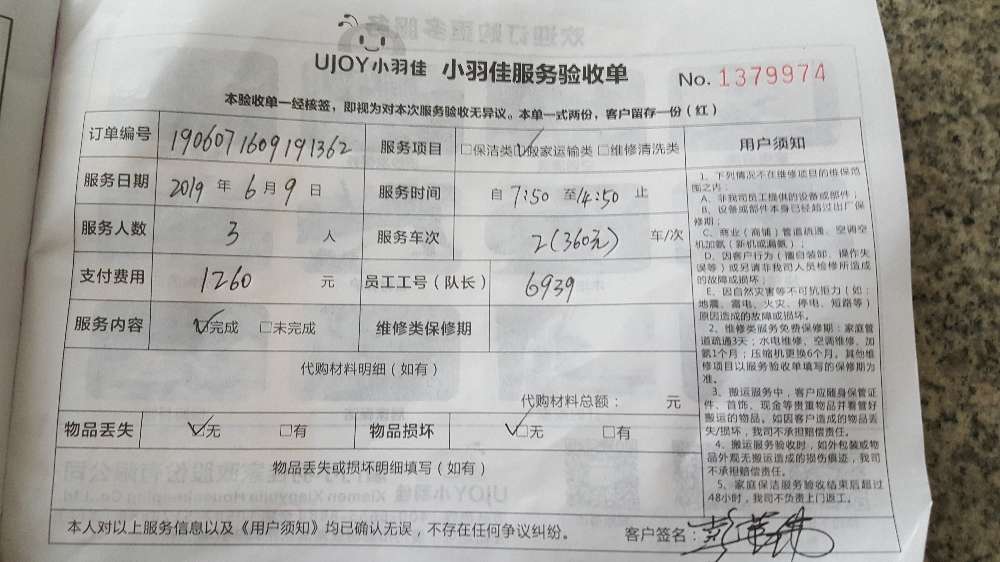 UJOY小羽佳 小羽佳服务验收单 No. 1379974
本验收单一经核签，即视为对本次服务验收无异议。本单一式两份，客户留存一份（红）
订单编号 1906071609191362 服务项目 □保洁类 ☑搬家运输类 □维修清洗类
服务日期 2019 年 6 月 9 日 服务时间 自 7:50 至 14:50 止
服务人数 3 人 服务车次 2(360元) 车/次
支付费用 1260 元 员工工号（队长） 6939
服务内容 ☑完成 □未完成 维修类保修期
代购材料明细（如有）
代购材料总额： 元
物品丢失 ☑无 □有 物品损坏 ☑无 □有
物品丢失或损坏明细填写（如有）
本人对以上服务信息以及《用户须知》均已确认无误，不存在任何争议纠纷。 客户签名：
用户须知
1、下列情况不在维修项目的维保范
围之内：
A、非我司员工提供的设备或部件；
B、设备或部件本身已经超过出厂保
修期；
C、商业（商铺）管道疏通、空调空
机加氨（新机或漏氨）；
D、因客户行为（擅自装卸、操作失
误等）或另请非我司人员检修所造成
的故障或损坏；
E、因自然灾害等不可抗拒力（如：
地震、雷电、火灾、停电、短路等）
原因造成的故障或损坏。
2、维修类服务免费保修期：家庭管
道疏通3天；水电维修、空调维修、加
氨1个月；压缩机更换6个月。其他维
修项目以服务验收单填写的保修期为
准。
3、搬运服务中，客户应随身保管证
件、首饰、现金等贵重物品并看管好
搬运的物品。如因客户造成的物品丢
失/损坏，我司不承担赔偿责任。
4、搬运服务验收时，如外包装或物
品外观无搬运造成的损伤痕迹，我司
不承担赔偿责任。
5、家庭保洁服务验收结束后超过
48小时，我司不负责上门返工。